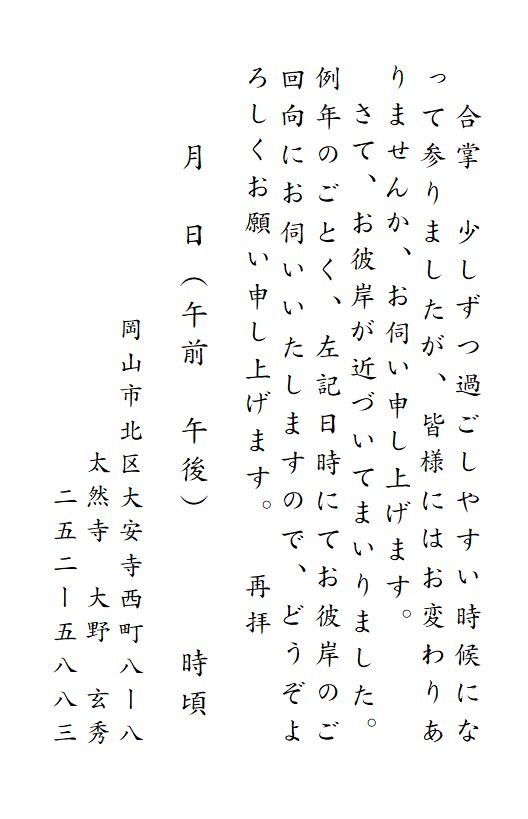 合掌　少しずつ過ごしやすい時候にな
って参りましたが、皆様にはお変わりあ
りませんか、お伺い申し上げます。
さて、お彼岸が近づいてまいりました。
例年のごとく、左記日時にてお彼岸のご
回向にお伺いいたしますので、どうぞよ
ろしくお願い申し上げます。　再拝
月　日（午前　午後）　時頃
岡山市北区大安寺西町八ー八
太然寺　大野　玄秀
二五二ー五八八三